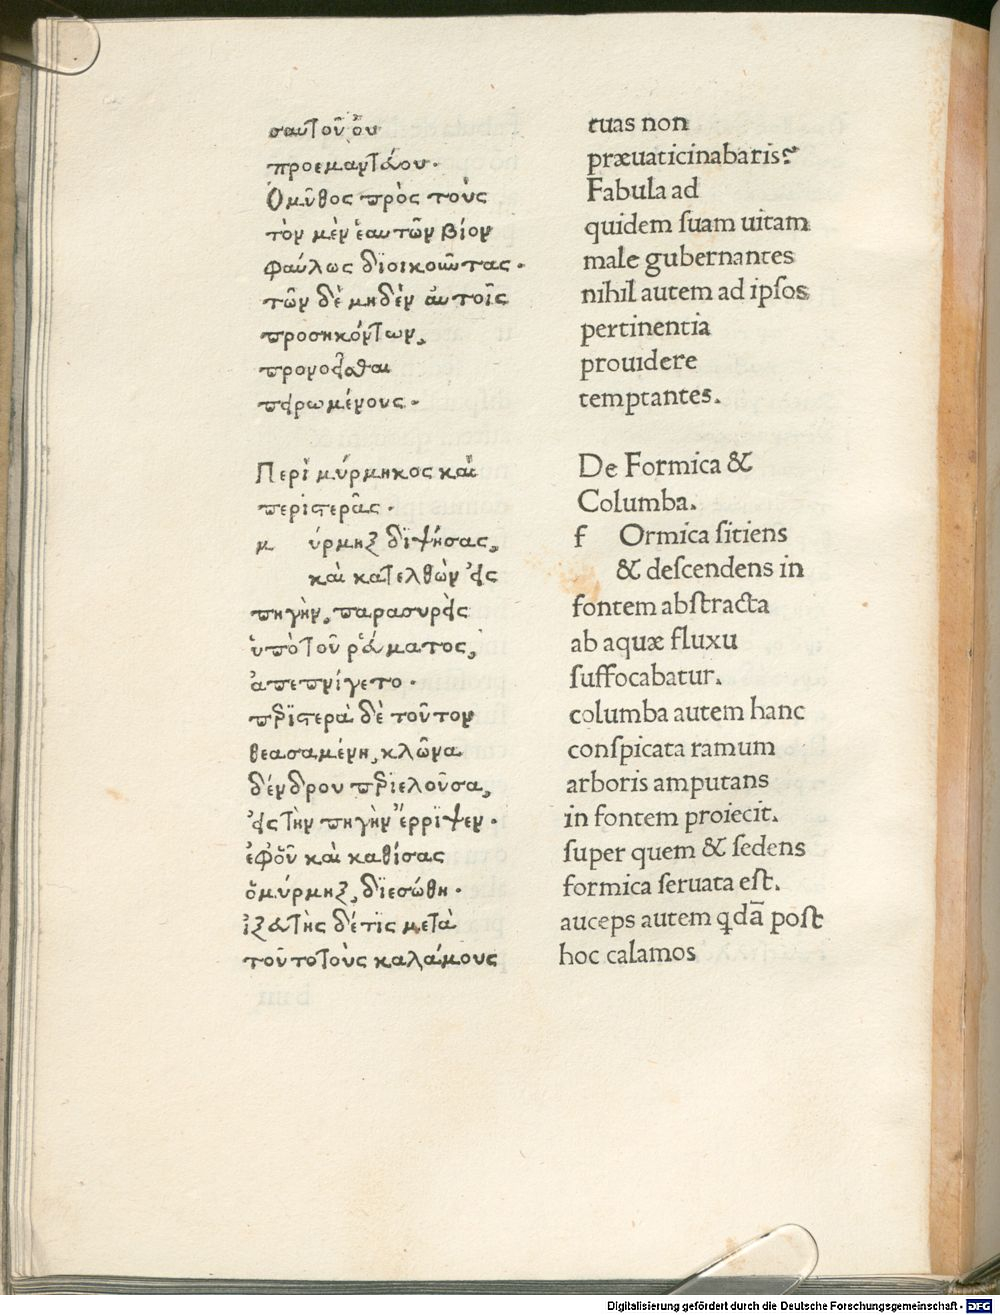 σαυτοῦ οὐ
προεμαντεύου.
Ὁ μῦθος πρὸς τοὺς
τὸν μὲν ἑαυτῶν βίον
φαύλως διοικοῦντας.
τῶν δὲ μηδὲν αὐτοῖς
προσηκόντων,
προνοεῖσθαι
πειρωμένους.
Περὶ μύρμηκος καὶ
περιστερᾶς.
μ ύρμηξ διψήσας,
καὶ κατελθὼν εἰς
πηγὴν, παρασυρεὶς
ὑπὸ τοῦ ῥεύματος,
ἀπεπνίγετο.
περιστερὰ δὲ τοῦτον
θεασαμένη, κλῶνα
δένδρου περιελοῦσα,
εἰς τὴν πηγὴν ἔρριψεν.
ἐφ' οὗ καὶ καθίσας
ὁ μύρμηξ, διεσώθη.
ἰξευτὴς δέ τις μετὰ
τοῦτο τοὺς καλάμους
tuas non
præuaticinabaris?
Fabula ad
quidem ſuam uitam
male gubernantes
nihil autem ad ipſos
pertinentia
prouidere
temptantes.
De Formica &
Columba.
f Ormica ſitiens
& deſcendens in
fontem abſtracta
ab aquæ fluxu
ſuffocabatur.
columba autem hanc
conſpicata ramum
arboris amputans
in fontem proiecit.
ſuper quem & ſedens
formica ſeruata eſt.
auceps autem qdā poſt
hoc calamos
Digitalisierung gefördert durch die Deutsche Forschungsgemeinschaft - DFG